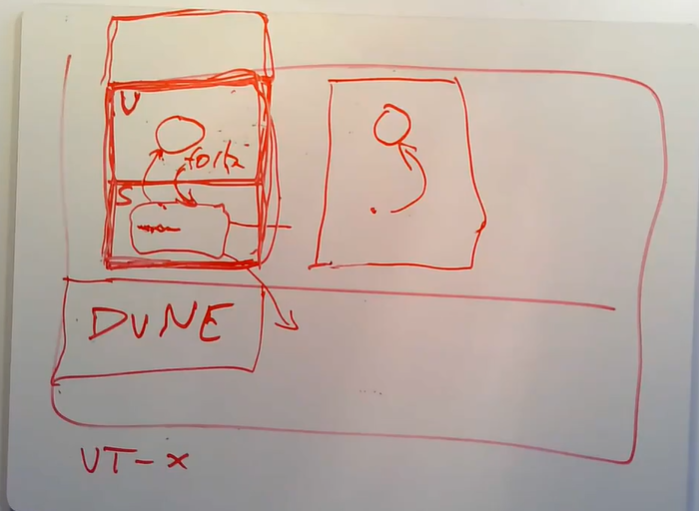 U
fork
S
DUNE
VT-x